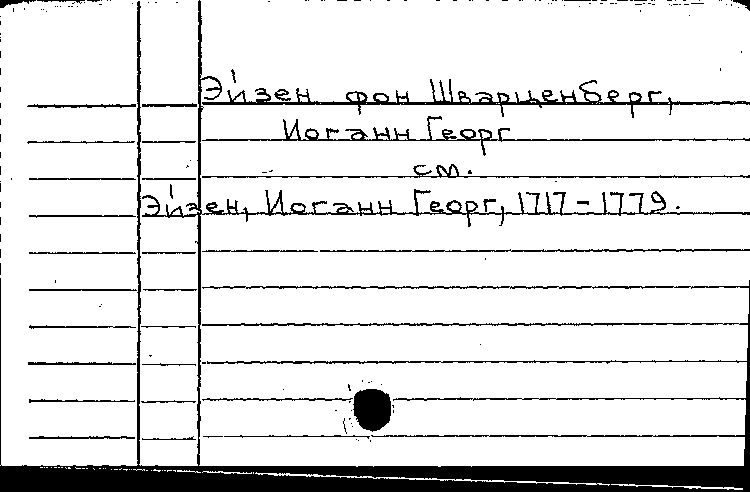 Эйзен фон Шварценберг,
Иоганн Георг
см.
Эйзен, Иоганн Георг, 1717-1779.